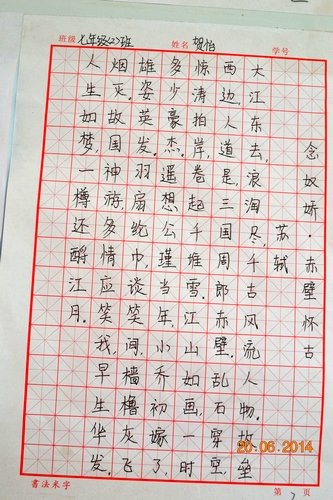 班级 七年级(2)班 姓名 贺怡 学号
念奴娇·赤壁怀古
苏轼
大江东去,浪淘尽,千古风流人物。故垒
西边,人道是,三国周郎赤壁。乱石穿空,
惊涛拍岸,卷起千堆雪。江山如画,一时
多少豪杰。遥想公瑾当年,小乔初嫁了,
雄姿英发。羽扇纶巾,谈笑间,樯橹灰飞
烟灭。故国神游,多情应笑我,早生华发。
人生如梦,一樽还酹江月。
書法米字 第 页
06 2014